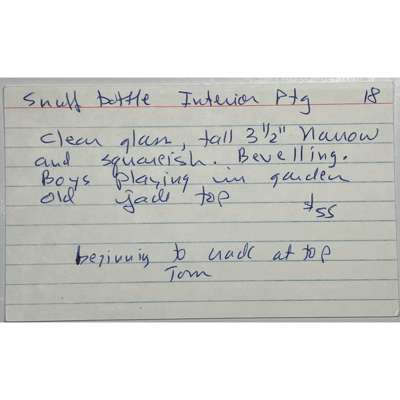 Snuff bottle Interior Ptg 18
Clear glass, tall 3 1/2" Narrow
and squareish. Bevelling.
Boys playing in garden
old jade top $55
beginning to crack at top
Tom